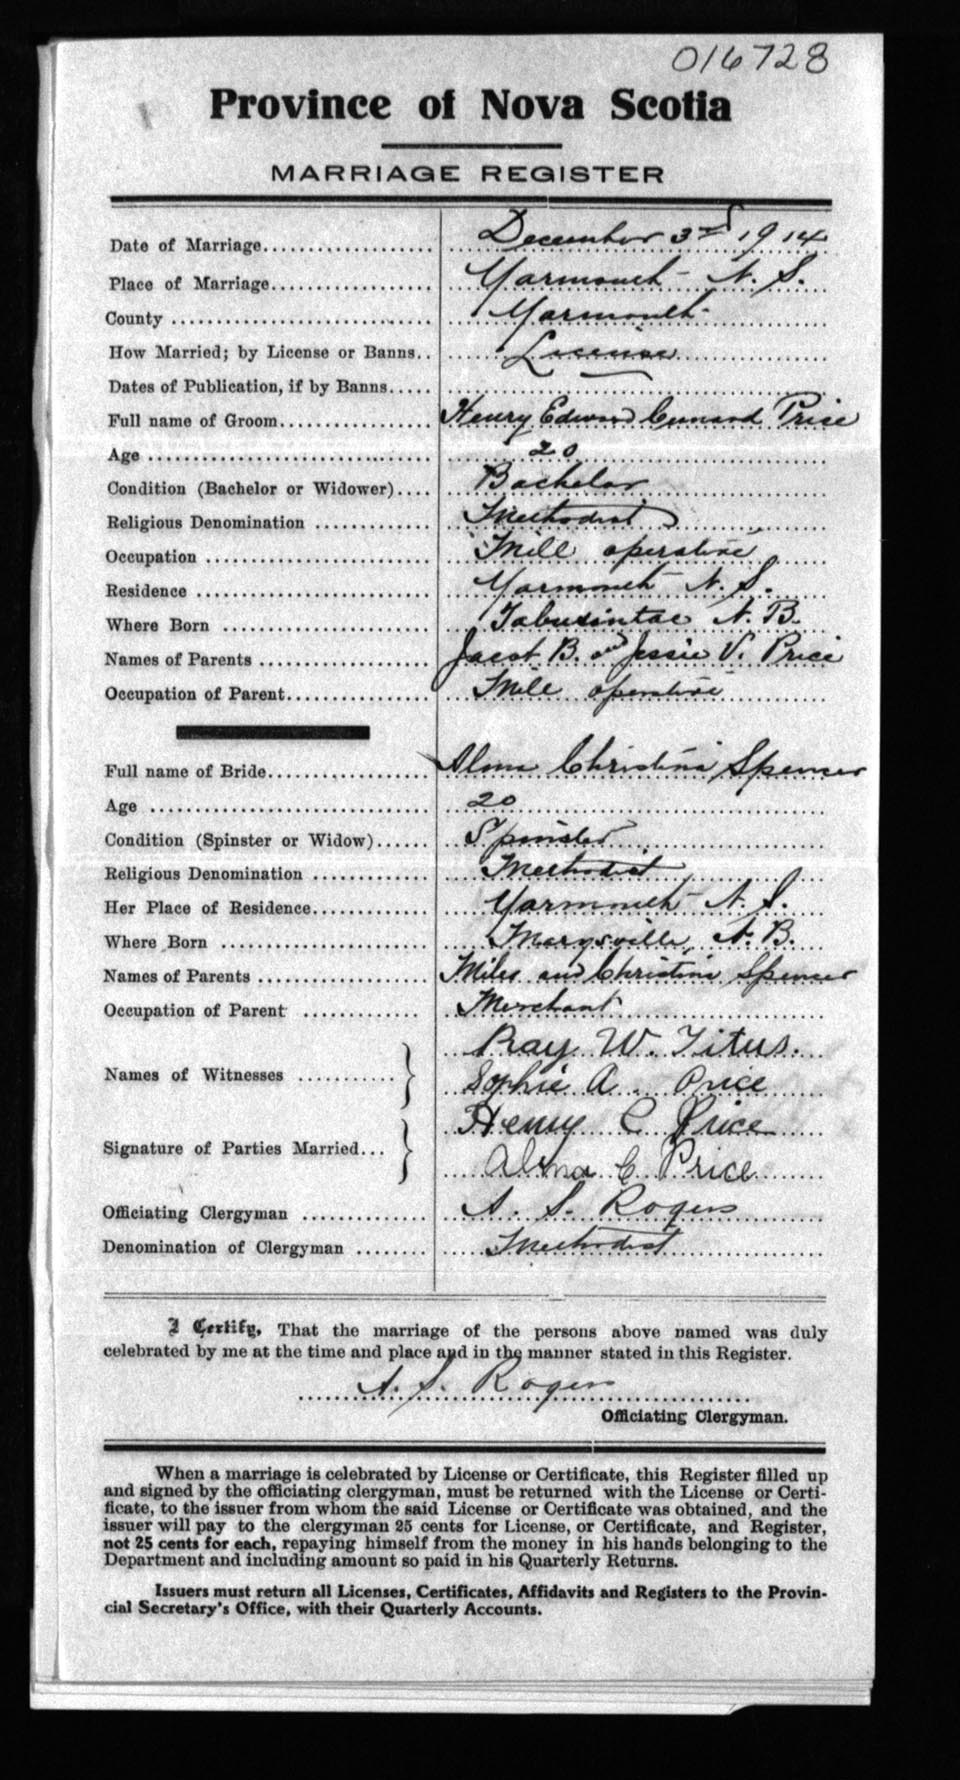 016728
Province of Nova Scotia
MARRIAGE REGISTER
Date of Marriage.................. December 3rd 1914
Place of Marriage.................. Yarmouth N. S.
County .................. Yarmouth
How Married; by License or Banns.. License
Dates of Publication, if by Banns.....
Full name of Groom.................. Henry Edward Cunard Price
Age .................. 20
Condition (Bachelor or Widower).... Bachelor
Religious Denomination .............. Methodist
Occupation .................. Mill operative
Residence .................. Yarmouth N. S.
Where Born .................. Tabusintac N. B.
Names of Parents .................. Jacob B. and Jessie V. Price
Occupation of Parent.................. Mill operative
Full name of Bride.................. Alma Christina Spencer
Age .................. 20
Condition (Spinster or Widow)...... Spinster
Religious Denomination .............. Methodist
Her Place of Residence.............. Yarmouth N. S.
Where Born .................. Marysville, N. B.
Names of Parents .................. Miles and Christina Spencer
Occupation of Parent .............. Merchant
Names of Witnesses ........... Ray W. Titus.
Sophie A. Price
Signature of Parties Married... Henry C Price
Alma C Price
Officiating Clergyman .............. A. S. Rogers
Denomination of Clergyman ........ Methodist
I Certify, That the marriage of the persons above named was duly
celebrated by me at the time and place and in the manner stated in this Register.
A. S. Rogers
Officiating Clergyman.
When a marriage is celebrated by License or Certificate, this Register filled up
and signed by the officiating clergyman, must be returned with the License or Certi-
ficate, to the issuer from whom the said License or Certificate was obtained, and the
issuer will pay to the clergyman 25 cents for License, or Certificate, and Register,
not 25 cents for each, repaying himself from the money in his hands belonging to the
Department and including amount so paid in his Quarterly Returns.
Issuers must return all Licenses, Certificates, Affidavits and Registers to the Provin-
cial Secretary's Office, with their Quarterly Accounts.